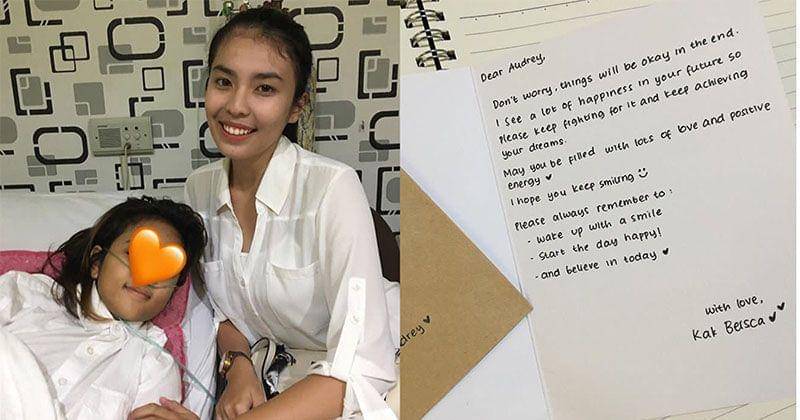 Dear Audrey,
Don't worry, things will be okay in the end.
I see a lot of happiness in your future so
please keep fighting for it and keep achieving
your dreams.
May you be filled with lots of love and positive
energy ♥
I hope you keep smiling ☺
Please always remember to :
- wake up with a smile
- start the day happy!
- and believe in today ♥
with love,
Kak Bersca ♥♥
udrey ♥